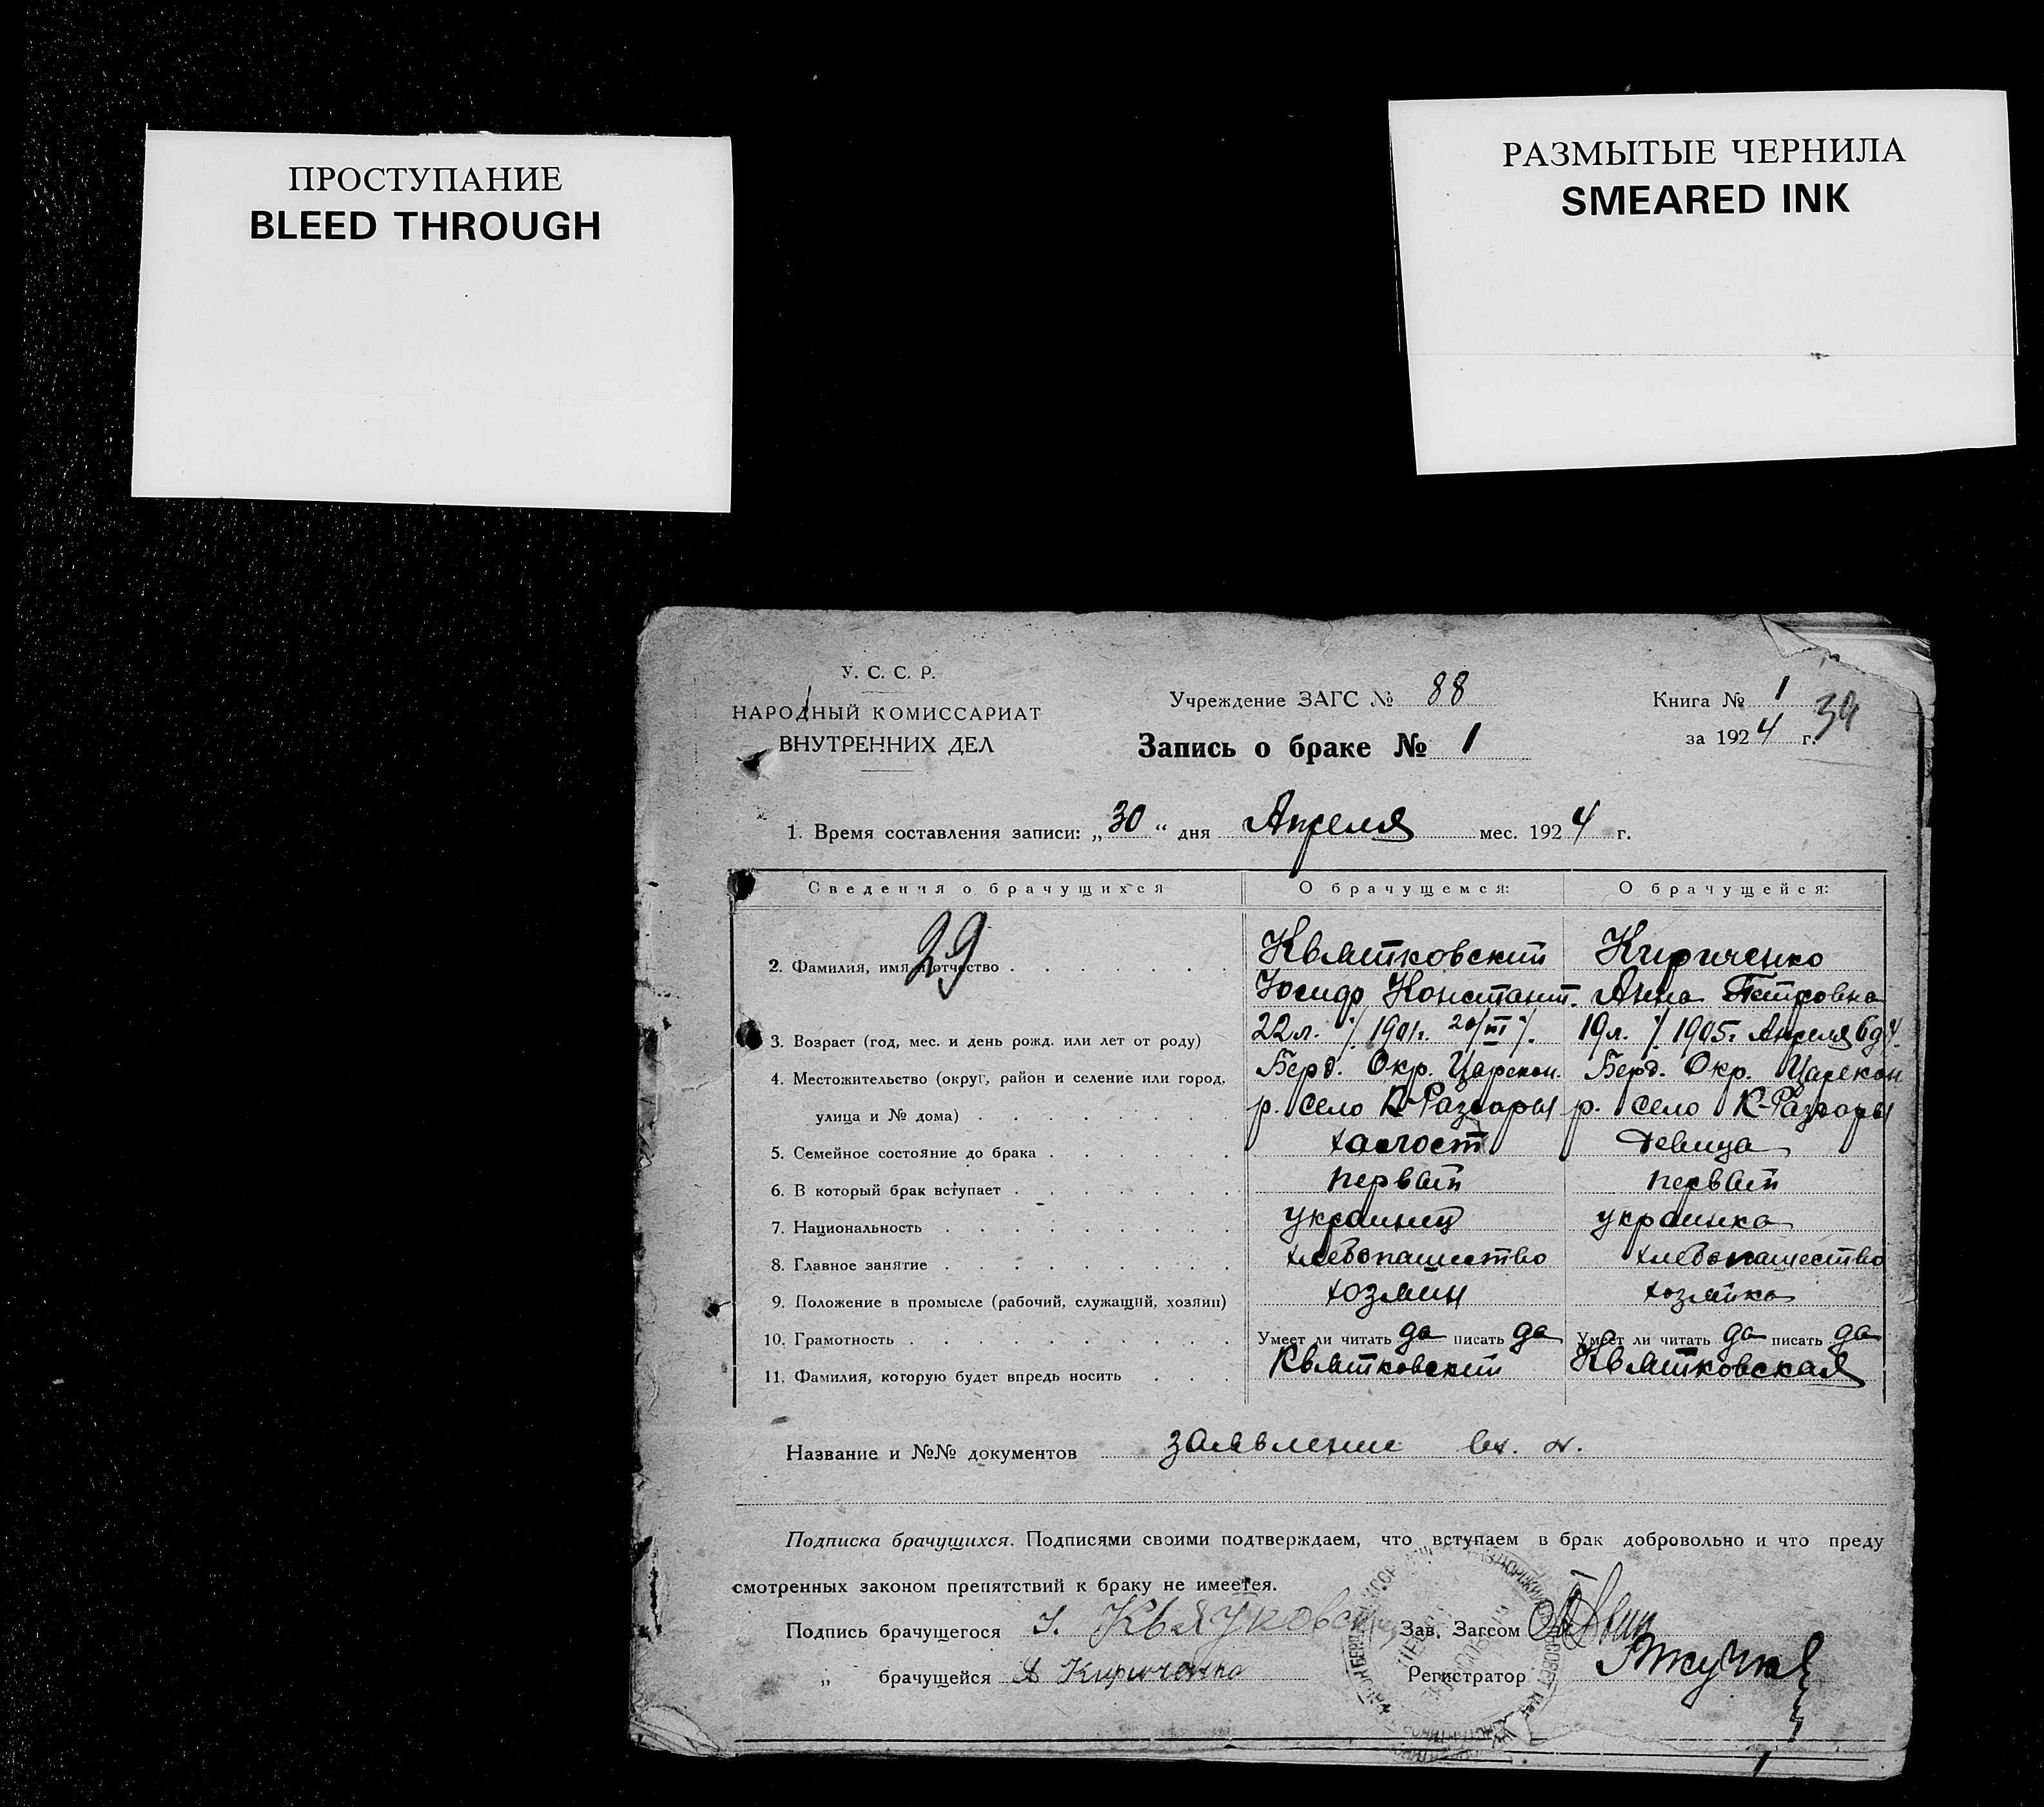 ПРОСТУПАНИЕ
BLEED THROUGH
РАЗМЫТЫЕ ЧЕРНИЛА
SMEARED INK
У. С. С. Р.
НАРОДНЫЙ КОМИССАРИАТ
ВНУТРЕННИХ ДЕЛ
Учреждение ЗАГС № 88
Запись о браке № 1
Книга № 1
34
за 1924 г.
1. Время составления записи: „30“ дня Апреля мес. 1924 г.
Сведения о брачущихся О брачущемся: О брачущейся:
29
2. Фамилия, имя и отчество Квятковский Кириченко
Иосиф Констант. Анна Петровна
3. Возраст (год, мес. и день рожд. или лет от роду) 22 л. 1901г. 20/III 19 л. 1905г. Апреля 6 д.
4. Местожительство (округ, район и селение или город, Берд. Окр. Царекон. Берд. Окр. Царекон
улица и № дома) р. село К-Разворы р. село К-Разворы
5. Семейное состояние до брака холост девица
6. В который брак вступает первый первый
7. Национальность украинец украинка
8. Главное занятие хлебопашество хлебопашество
9. Положение в промысле (рабочий, служащий, хозяин) хозяин хозяйка
10. Грамотность Умеет ли читать да писать да Умеет ли читать да писать да
11. Фамилия, которую будет впредь носить Квятковский Квятковская
Название и №№ документов заявление вх. №.
Подписка брачущихся. Подписями своими подтверждаем, что вступаем в брак добровольно и что преду
смотренных законом препятствий к браку не имеется.
Подпись брачущегося И. Квятковс Зав. Загсом
„ брачущейся А Кириченко Регистратор